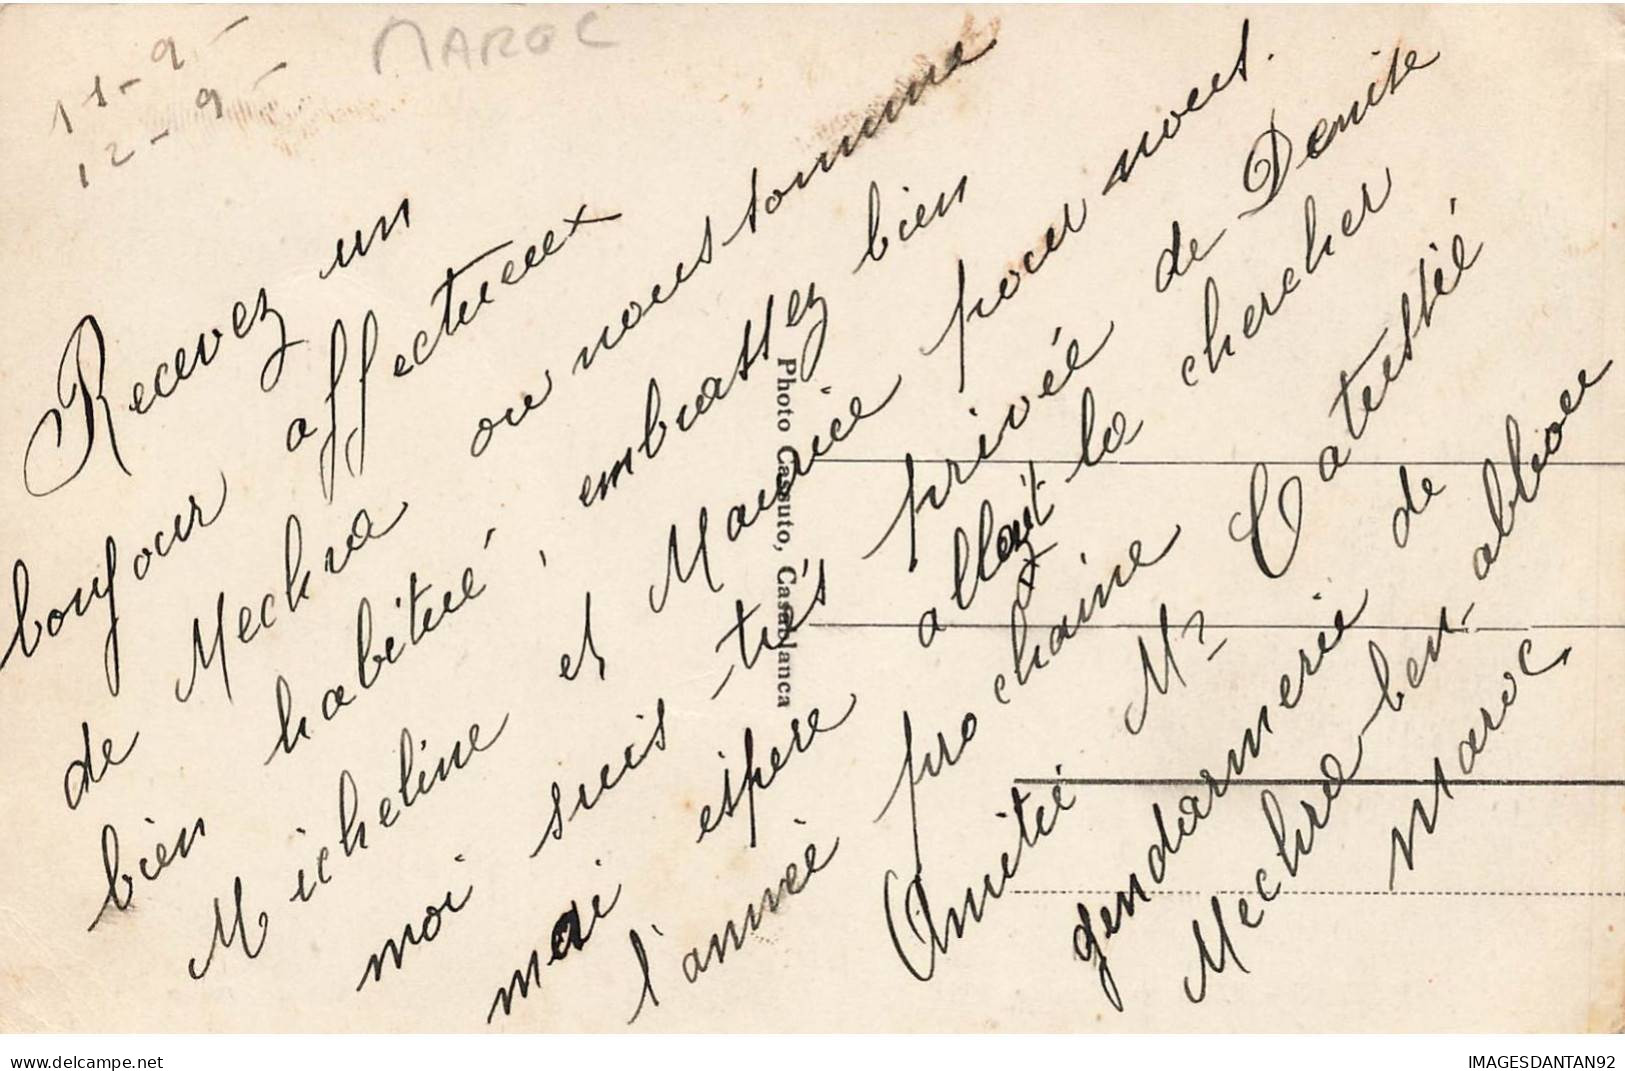 MAROC
11-9-
12-9-
Recevez un
bonjour affectueux
de Mechra ou nous somme
bien habitué, embrassez bien
Micheline et Maurice pour nous.
moi suis très privée de Denise
mai espere allezit la chercher
l'année prochaine
Amitié Mr
gendarmerie de
Mechra-ben-abbou
Maroc
Photo Cassuto, Casablanca
delcampe.net
IMAGESDANTAN92